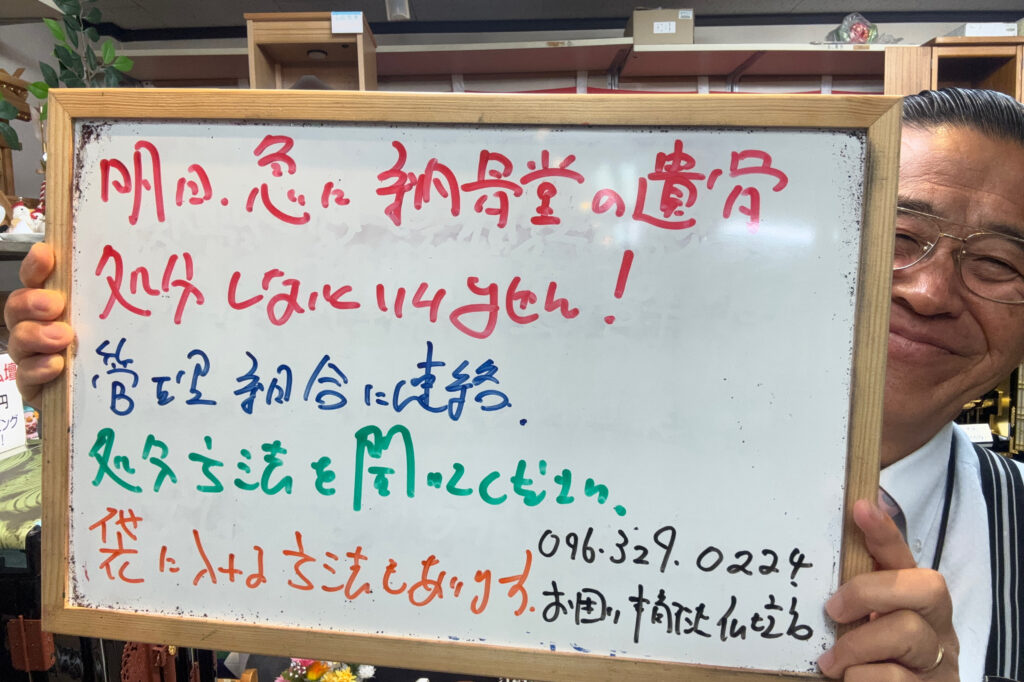 明日、急に納骨堂の遺骨
処分しないといけません!
管理組合に連絡、
処分方法を聞いてください、
袋に入れる方法もあります、
096.329.0224
お困り
壇
円